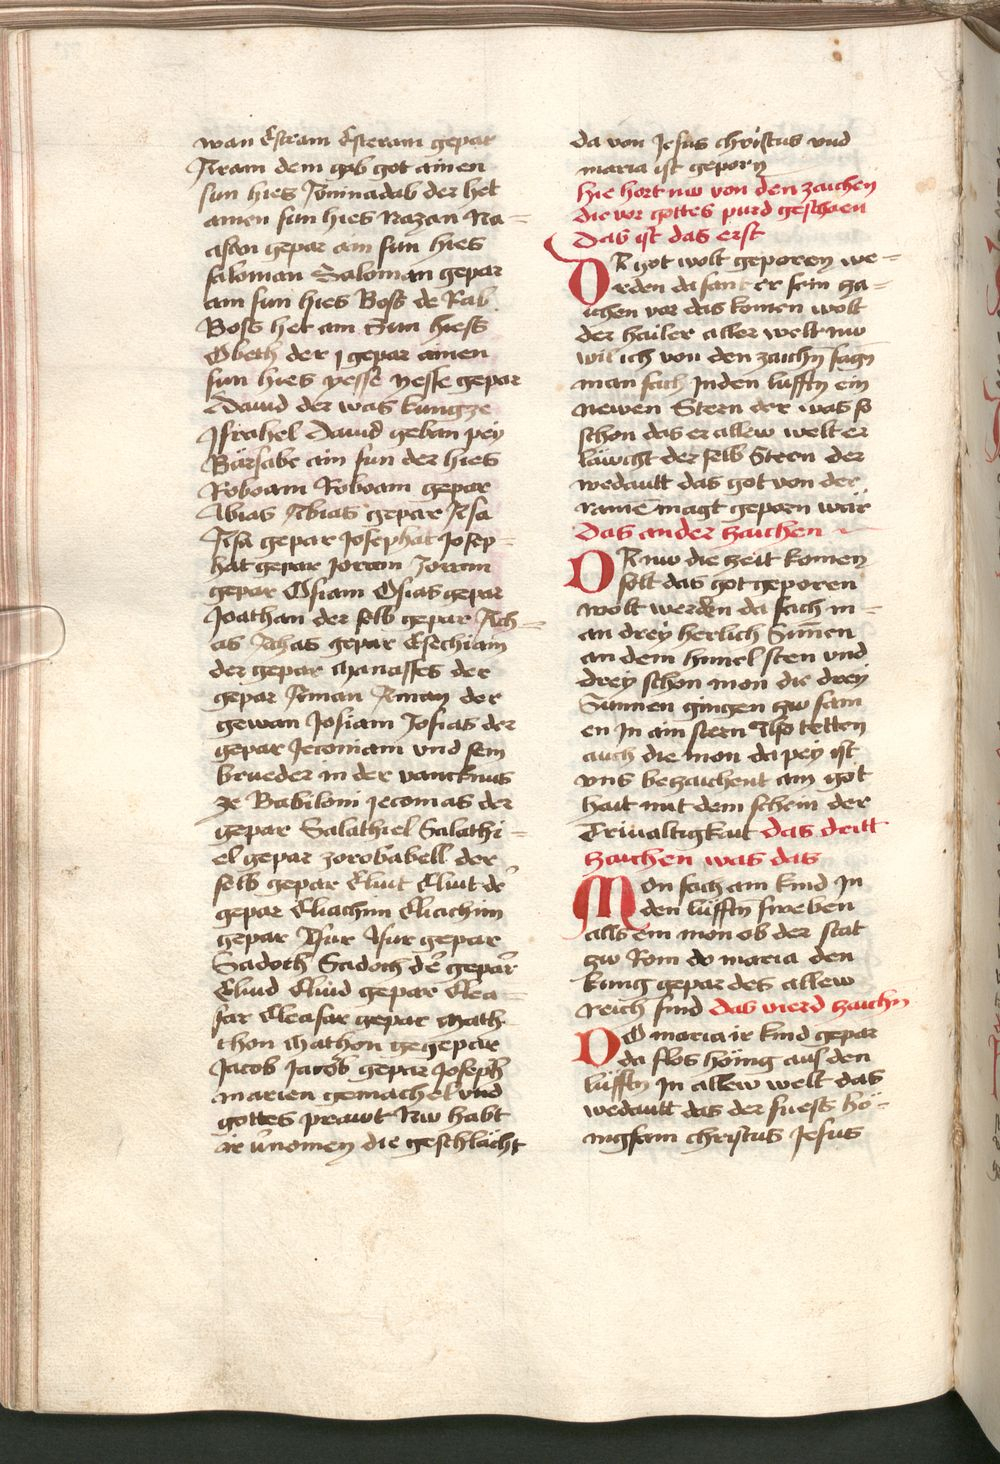 wan Estram Esteram gepar
Aram dem gab got ainen
sun hies Aminadab der het
ainen sun hies Nazan Na=
ason gepar ain sun hies
saloman Saloman gepar
ain sun hies Boss de Rab
Boss het ain Sun hiess
Obeth der j gepar ainen
sun hies yesse yesse gepar
Dauid der was kungze
Israhel Dauid geban pey
Bärsabe ain sun der hies
Roboam Roboam gepar
Abias Abias gepar Asa
Asa gepar Josephat Josep=
hat gepar Joram Joram
gepar Osiam Osias gepar
Joathan der selb gepar Ach=
as Achas gepar Esechiam
der gepar Manasses der
gepar Aman Aman der
gewan Josiam Josias der
gepar Jeconiam vnd sein
brueder in der vancknus
ze Babiloni jeconias der
gepar Salathiel Salathi=
el gepar zorobabell der
selb gepar Eliut Eliut de'
gepar Eliachim Eliachim
gepar Asur Asur gepar
Sadoch Sadoch de' gepar
Eliud Eliud gepar Elea=
sar Eleasar gepar Math
thon Mathon gegepar
Jacob Jacob gepar Joseph
marien gemachel vnd
gottes prawt Nw habt
ir v'nomen die geschlächt
da von Jesus christus vnd
maria ist geporn
hie hort nw von den zaichen
die vor gottes purd geschaen
Das ist das erst
DA got wolt geporen we=
rden da sant er sein za=
ichen vor das komen wolt
der hailer aller welt nw
wil ich von den zaichn sagn
man sach Inden lufftn ein
newen Stern der was so
schon das er allew welt er
läwcht der selb Stern der
wedautt das got von der
rainē magt geporn wär
Das ander zaichen
DA nw die zeit komen
solt das got geporen
wolt werden da sach m=
an drey herlich Sūnen
an dem himel sten vnd
drey schon mon die drey
Sunnen gingen zw sam
en In ain stern Also tetten
auch die mon da pey ist
vns bezaichent ain got
hait mit dem schein der
Triualtigkait das dritt
zaichen was das
MOn sach ain kind In
den lüfftn sweben
alls ein mon ob der stat
zw Rom do maria den
kunig gepar des allew
reich sind das vierd zaichn
DO maria ir kind gepar
da flos höing aus den
lüfftn In allew welt das
wedautt das der suess hö=
nigsam christus Jesus